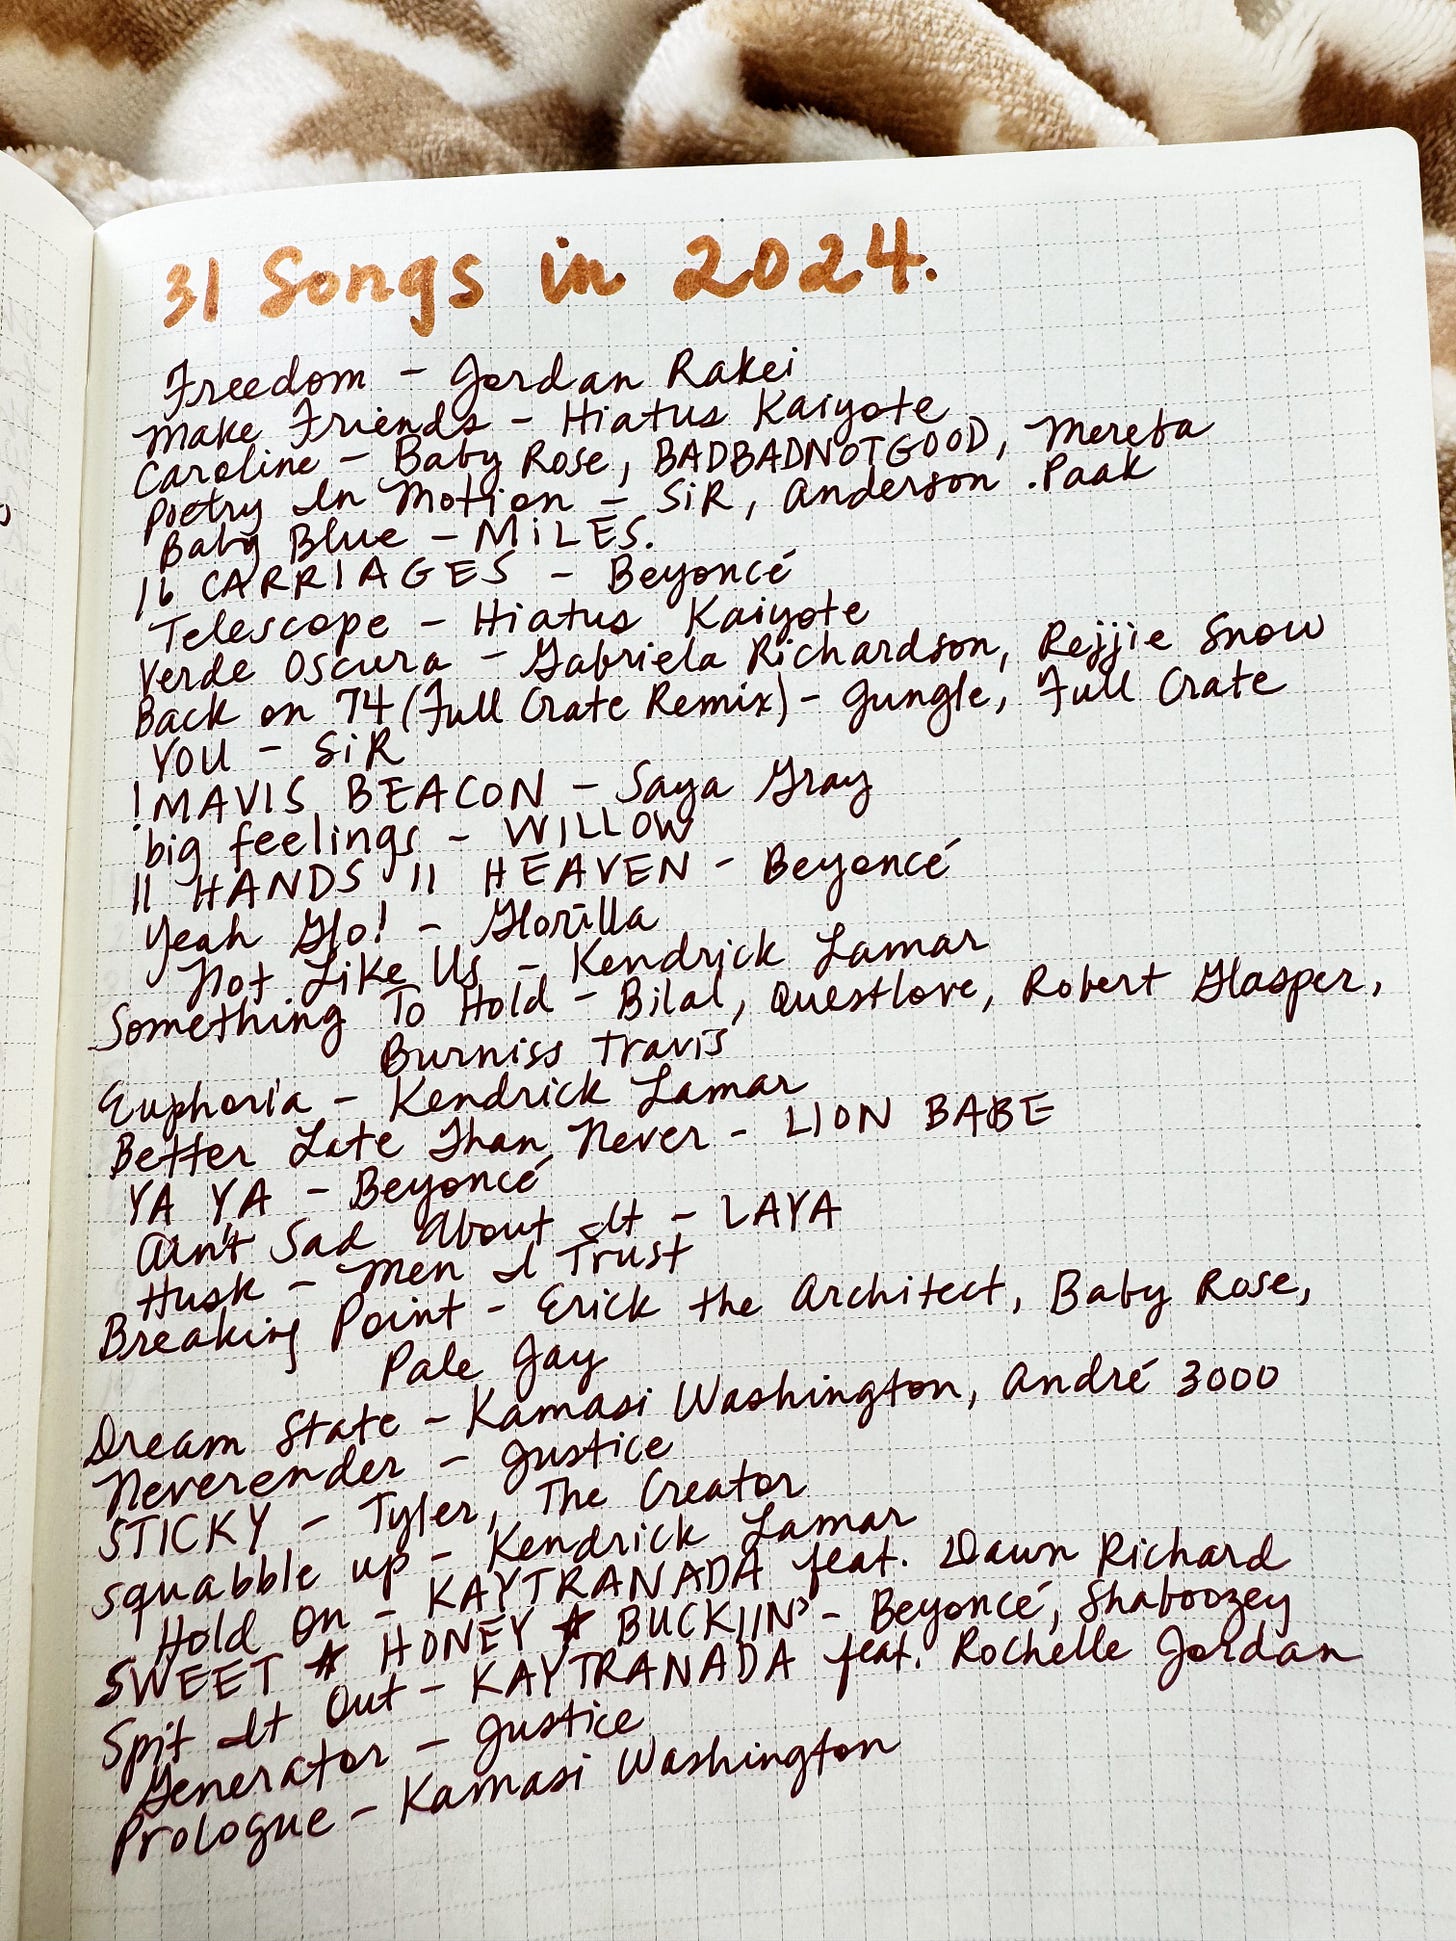 31 Songs in 2024.
Freedom - Jordan Rakei
Make Friends - Hiatus Kaiyote
Caroline - Baby Rose, BADBADNOTGOOD, Mereba
Poetry In Motion - SiR, Anderson .Paak
Baby Blue - MiLES.
16 CARRIAGES - Beyoncé
Telescope - Hiatus Kaiyote
Verde Oscura - Gabriela Richardson, Rejjie Snow
Back on 74 (Full Crate Remix) - Jungle, Full Crate
YOU - SiR
!MAVIS BEACON - Saya Gray
big feelings - WILLOW
II HANDS II HEAVEN - Beyoncé
Yeah Glo! - Glorilla
Not Like Us - Kendrick Lamar
Something To Hold - Bilal, Questlove, Robert Glasper,
Burniss Travis
Euphoria - Kendrick Lamar
Better Late Than Never - LION BABE
YA YA - Beyoncé
Ain't Sad About It - LAYA
Husk - Men I Trust
Breaking Point - Erick the Architect, Baby Rose,
Pale Jay
Dream State - Kamasi Washington, André 3000
Neverender - Justice
STICKY - Tyler, The Creator
squabble up - Kendrick Lamar
Hold On - KAYTRANADA feat. Dawn Richard
SWEET ★ HONEY ★ BUCKIIN' - Beyoncé, Shaboozey
Spit It Out - KAYTRANADA feat. Rochelle Jordan
Generator - Justice
Prologue - Kamasi Washington